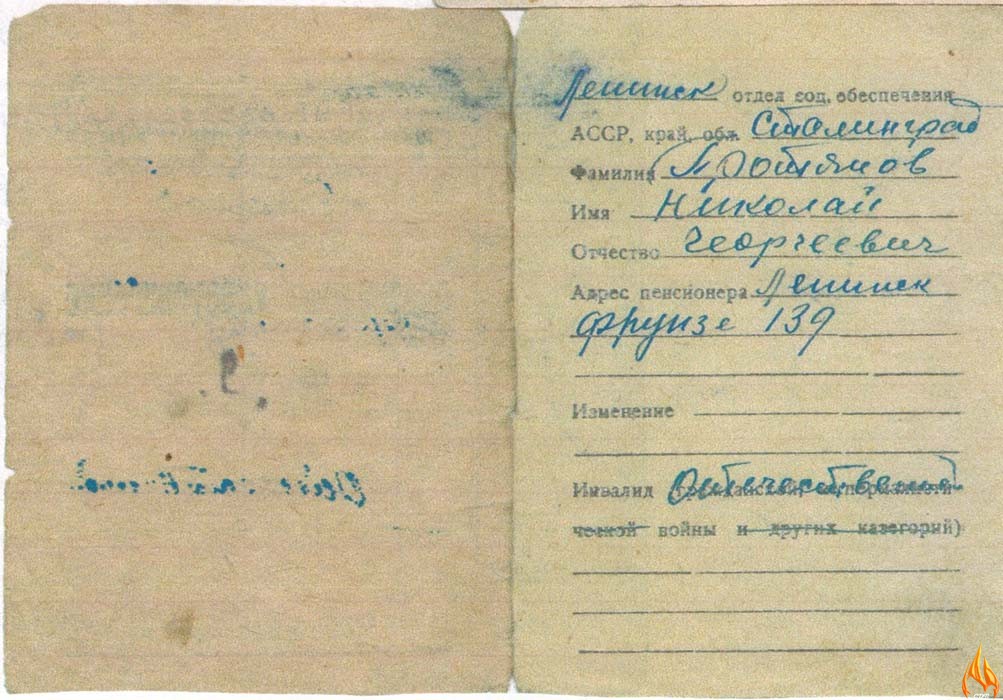 Ленинск отдел соц. обеспечения
АССР, край, обл. Сталинград
Фамилия Протямов
Имя Николай
Отчество Георгеевич
Адрес пенсионера Ленинск
Фрунзе 139
Изменение
Инвалид Отечественной
ческой войны и других категорий)